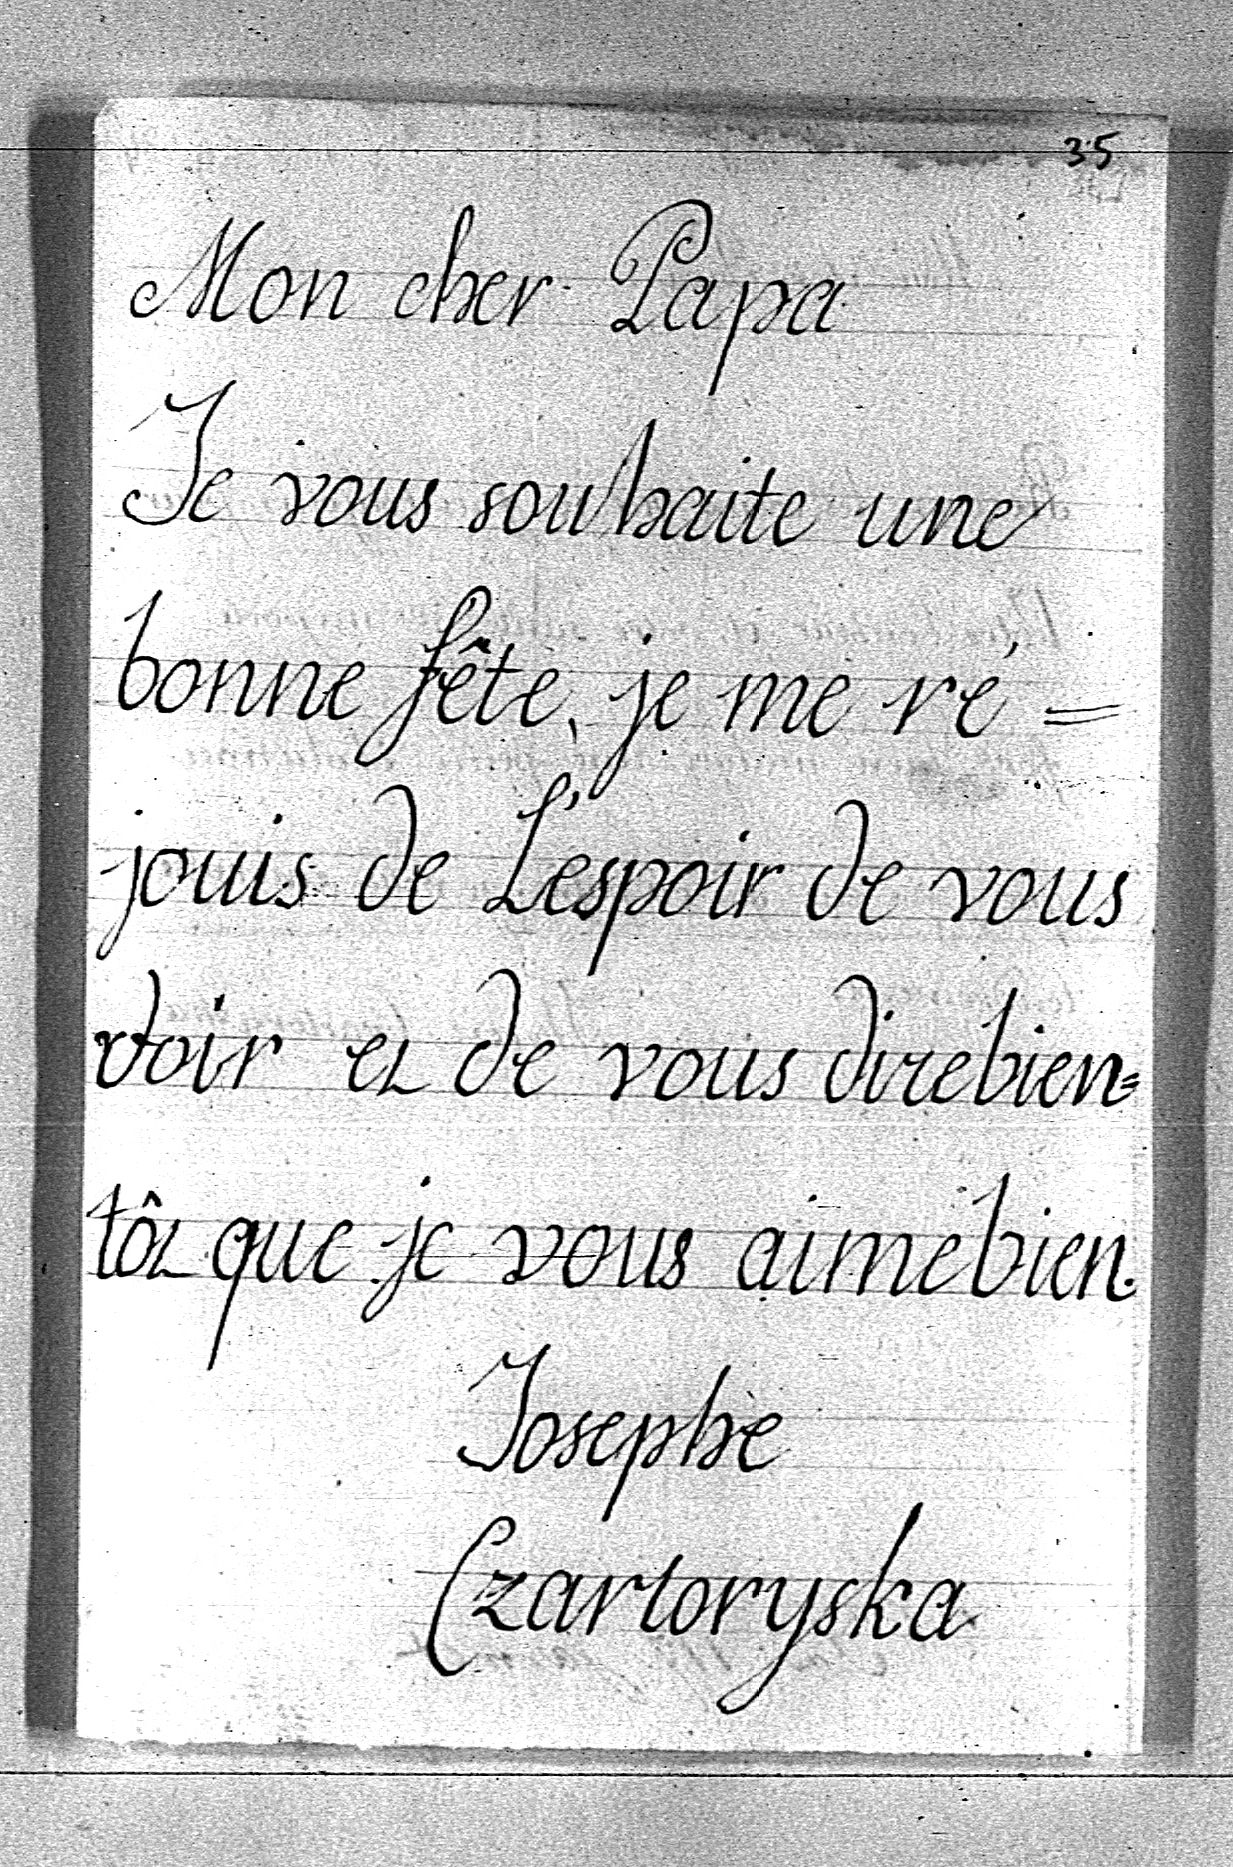 35
Mon cher Papa
Je vous souhaite une
bonne fête, je me ré=
jouis de L'espoir de vous
voir et de vous dire bien=
tôt que je vous aime bien.
Josephe
Czartoryska